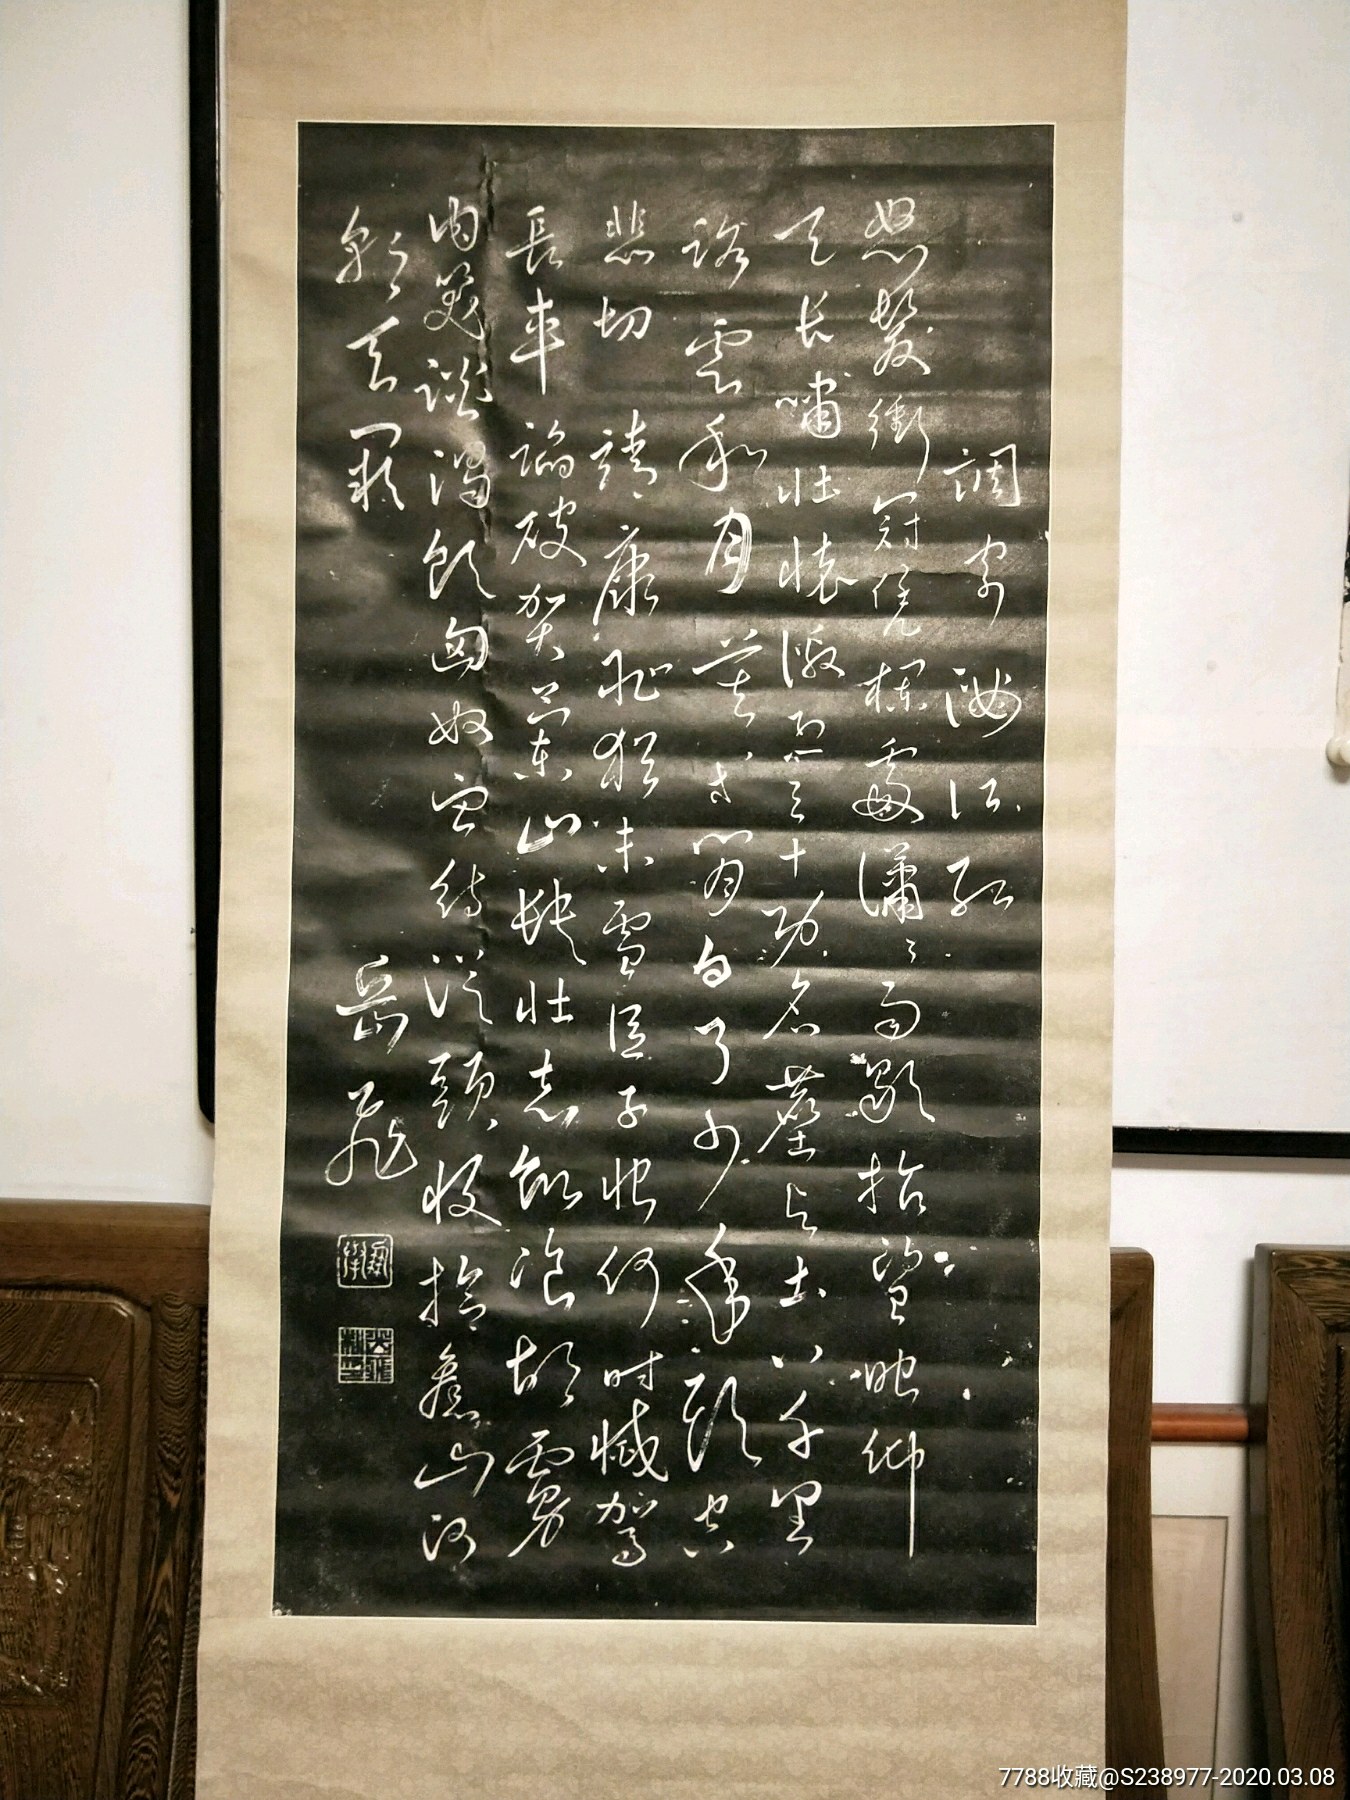 調寄滿江紅
怒髮衝冠凭欄處瀟〻雨歇抬望眼仰
天長嘯壯懷激烈三十功名塵与土八千里
路雲和月莫等閒白了少年頭空
悲切 靖康恥猶未雪臣子恨何時滅駕
長車蹈破賀蘭山缺壯志飢飡胡虜
肉笑談渴飲匈奴血待從頭收拾舊山河
朝天闕 岳飛
7788收藏@S238977-2020.03.08